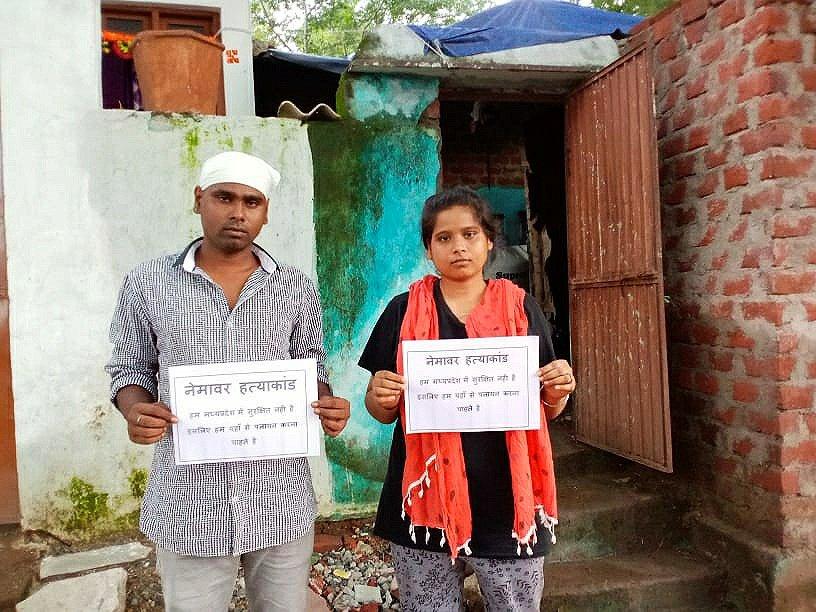 नेमावर हत्याकांड
हम मध्यप्रदेश में सुरक्षित नही है
इसलिए हम यहाँ से पलायन करना
चाहते है
नेमावर हत्याकांड
हम मध्यप्रदेश में सुरक्षित नही है
इसलिए हम यहाँ से पलायन करना
चाहते है
Super